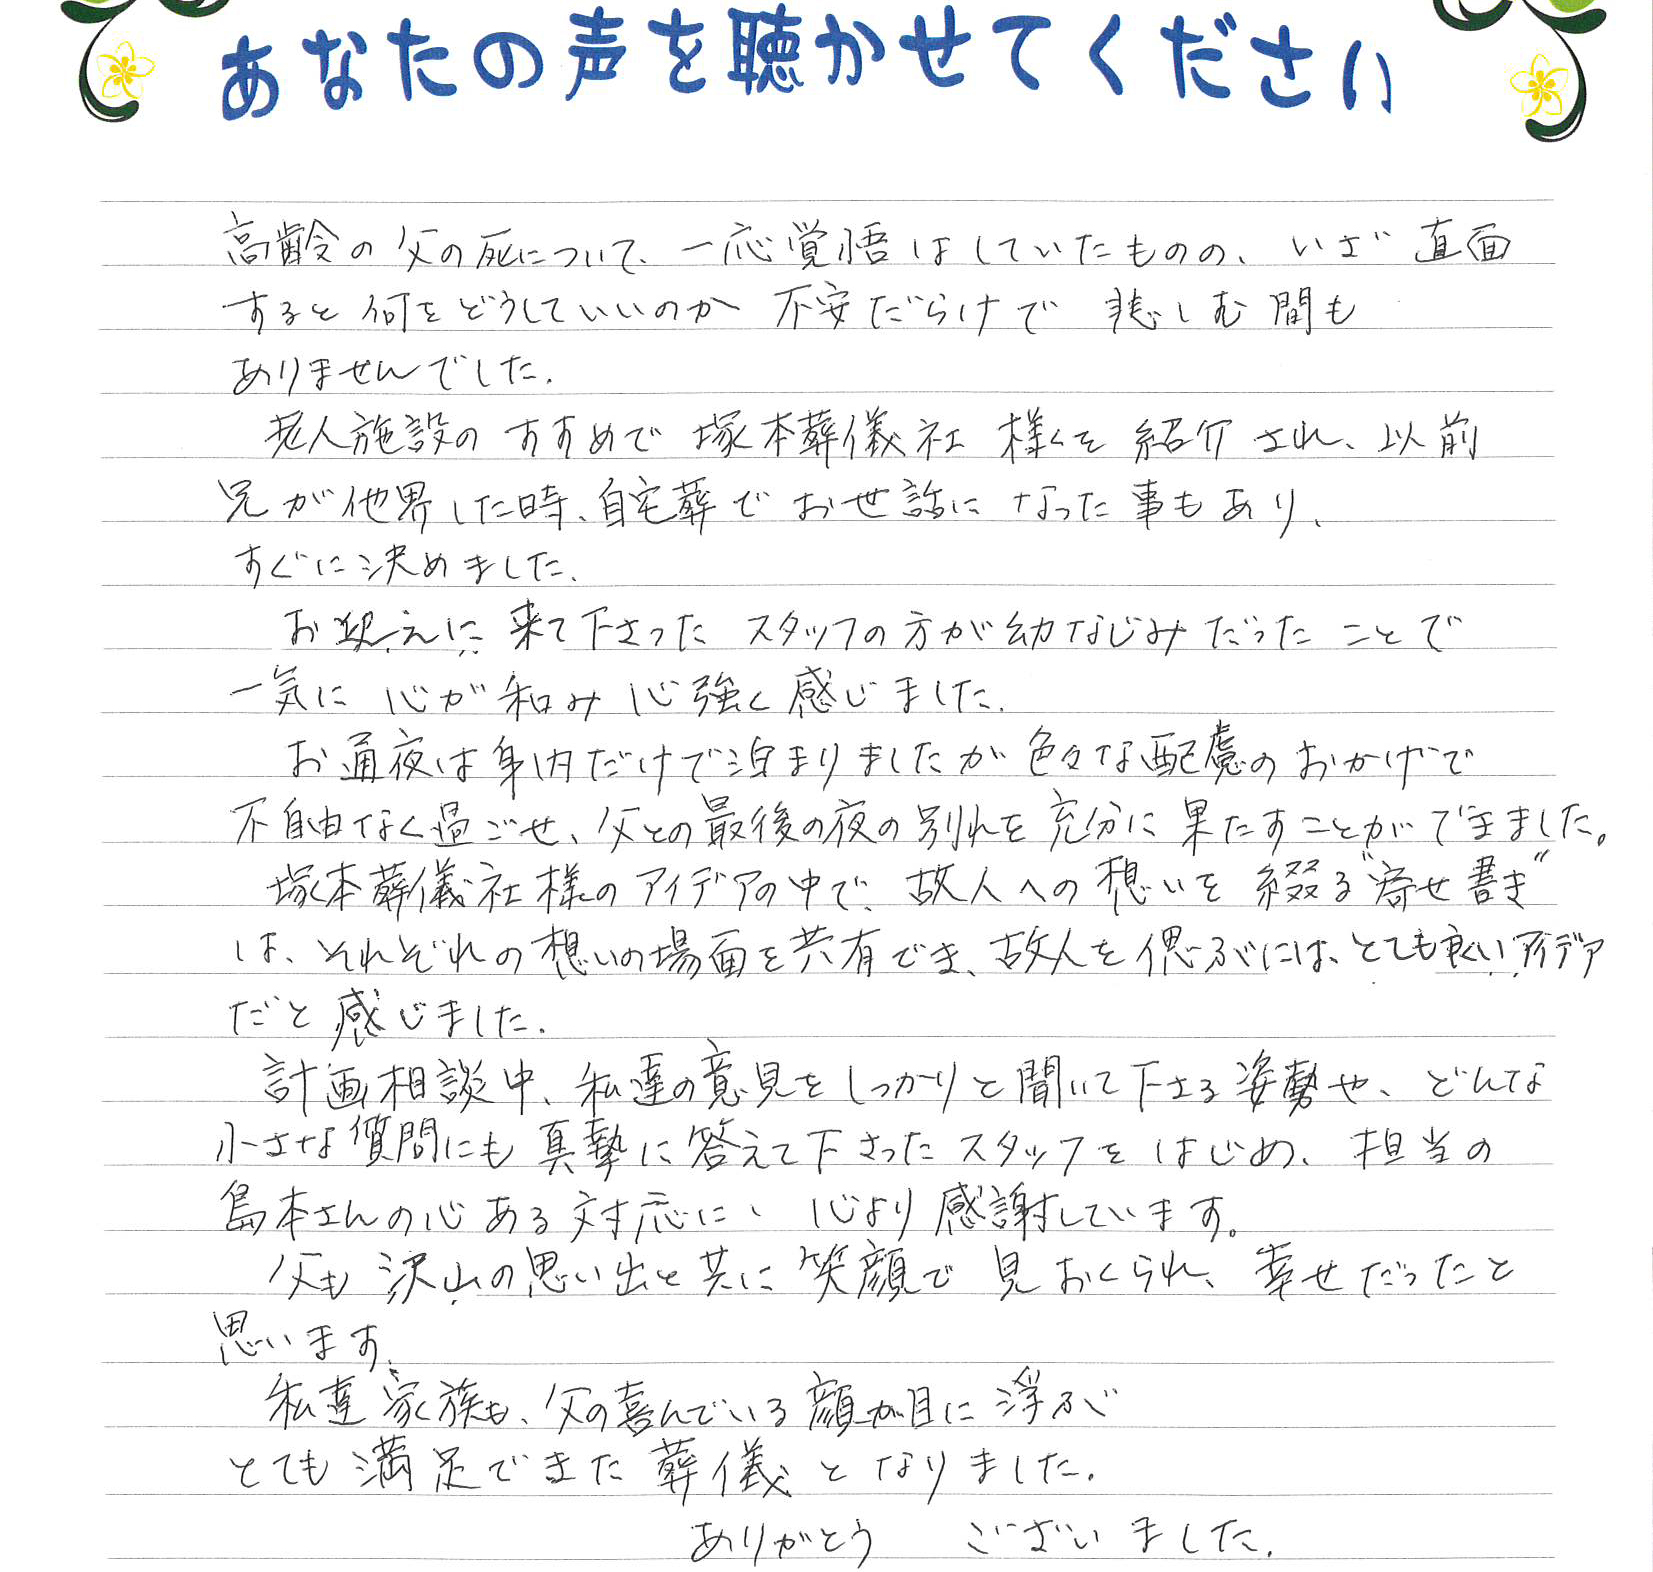 あなたの声を聴かせてください
高齢の父の死について、一応覚悟はしていたものの、いざ直面
すると何をどうしていいのか不安だらけで悲しむ間も
ありませんでした。
老人施設のすすめで塚本葬儀社様を紹介され、以前
兄が他界した時、自宅葬でお世話になった事もあり、
すぐに決めました。
お迎えに来て下さったスタッフの方が幼なじみだったことで
一気に心が和み心強く感じました。
お通夜は身内だけで泊まりましたが色々な配慮のおかげで
不自由なく過ごせ、父との最後の夜の別れを充分に果たすことができました。
塚本葬儀社様のアイデアの中で、故人への想いを綴る"寄せ書き"
は、それぞれの想いの場面を共有でき、故人を偲ぶには、とても良いアイデア
だと感じました。
計画相談中、私達の意見をしっかりと聞いて下さる姿勢や、どんな
小さな質問にも真摯に答えて下さったスタッフをはじめ、担当の
島本さんの心ある対応に、心より感謝しています。
父も沢山の思い出と共に笑顔で見おくられ、幸せだったと
思います。
私達家族も、父の喜んでいる顔が目に浮ぶ
とても満足できた葬儀となりました。
ありがとう ございました。